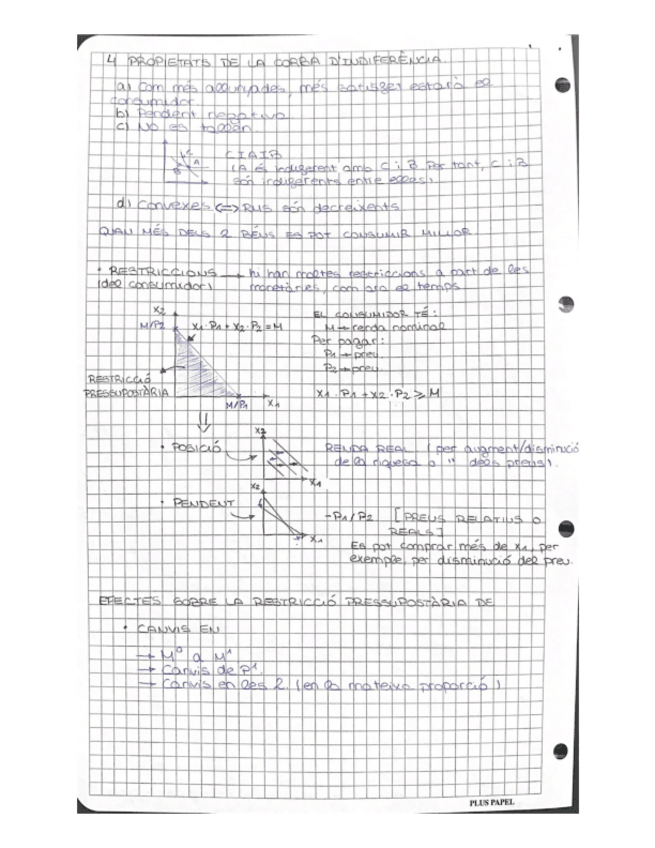 4 PROPIETATS DE LA CORBA D'INDIFERÈNCIA.
a) Com més allunyades, més satisfet estarà el
consumidor
b) Pendent negativa
c) No es tallen.
C I A I B
(A és indiferent amb C i B. Per tant, C i B
són indiferents entre elles)
C
A
B
d) Convexes <=> RMS són decreixents
QUAN MÉS DELS 2 BÉNS ES POT CONSUMIR MILLOR
• RESTRICCIONS → hi han moltes restriccions a part de les
(del consumidor) monetàries, com ara el temps
X2
M/P2 X1·P1 + X2·P2 = M
RESTRICCIÓ
PRESSUPOSTÀRIA
M/P1 X1
EL CONSUMIDOR TÉ:
M → renda nominal
Per pagar:
P1 → preu
P2 → preu
X1·P1 + X2·P2 ≥ M
• POSICIÓ
X2
X1
RENDA REAL (per augment/disminució
de la riquesa o " dels preus).
• PENDENT
X2
X1
-P1/P2 [PREUS RELATIUS O
REALS]
Es pot comprar més de X1, per
exemple, per disminució del preu.
EFECTES SOBRE LA RESTRICCIÓ PRESSUPOSTÀRIA DE
• CANVIS EN
→ M⁰ a M¹
→ Canvis de P¹.
→ Canvis en les 2. (en la mateixa proporció)
PLUS PAPEL